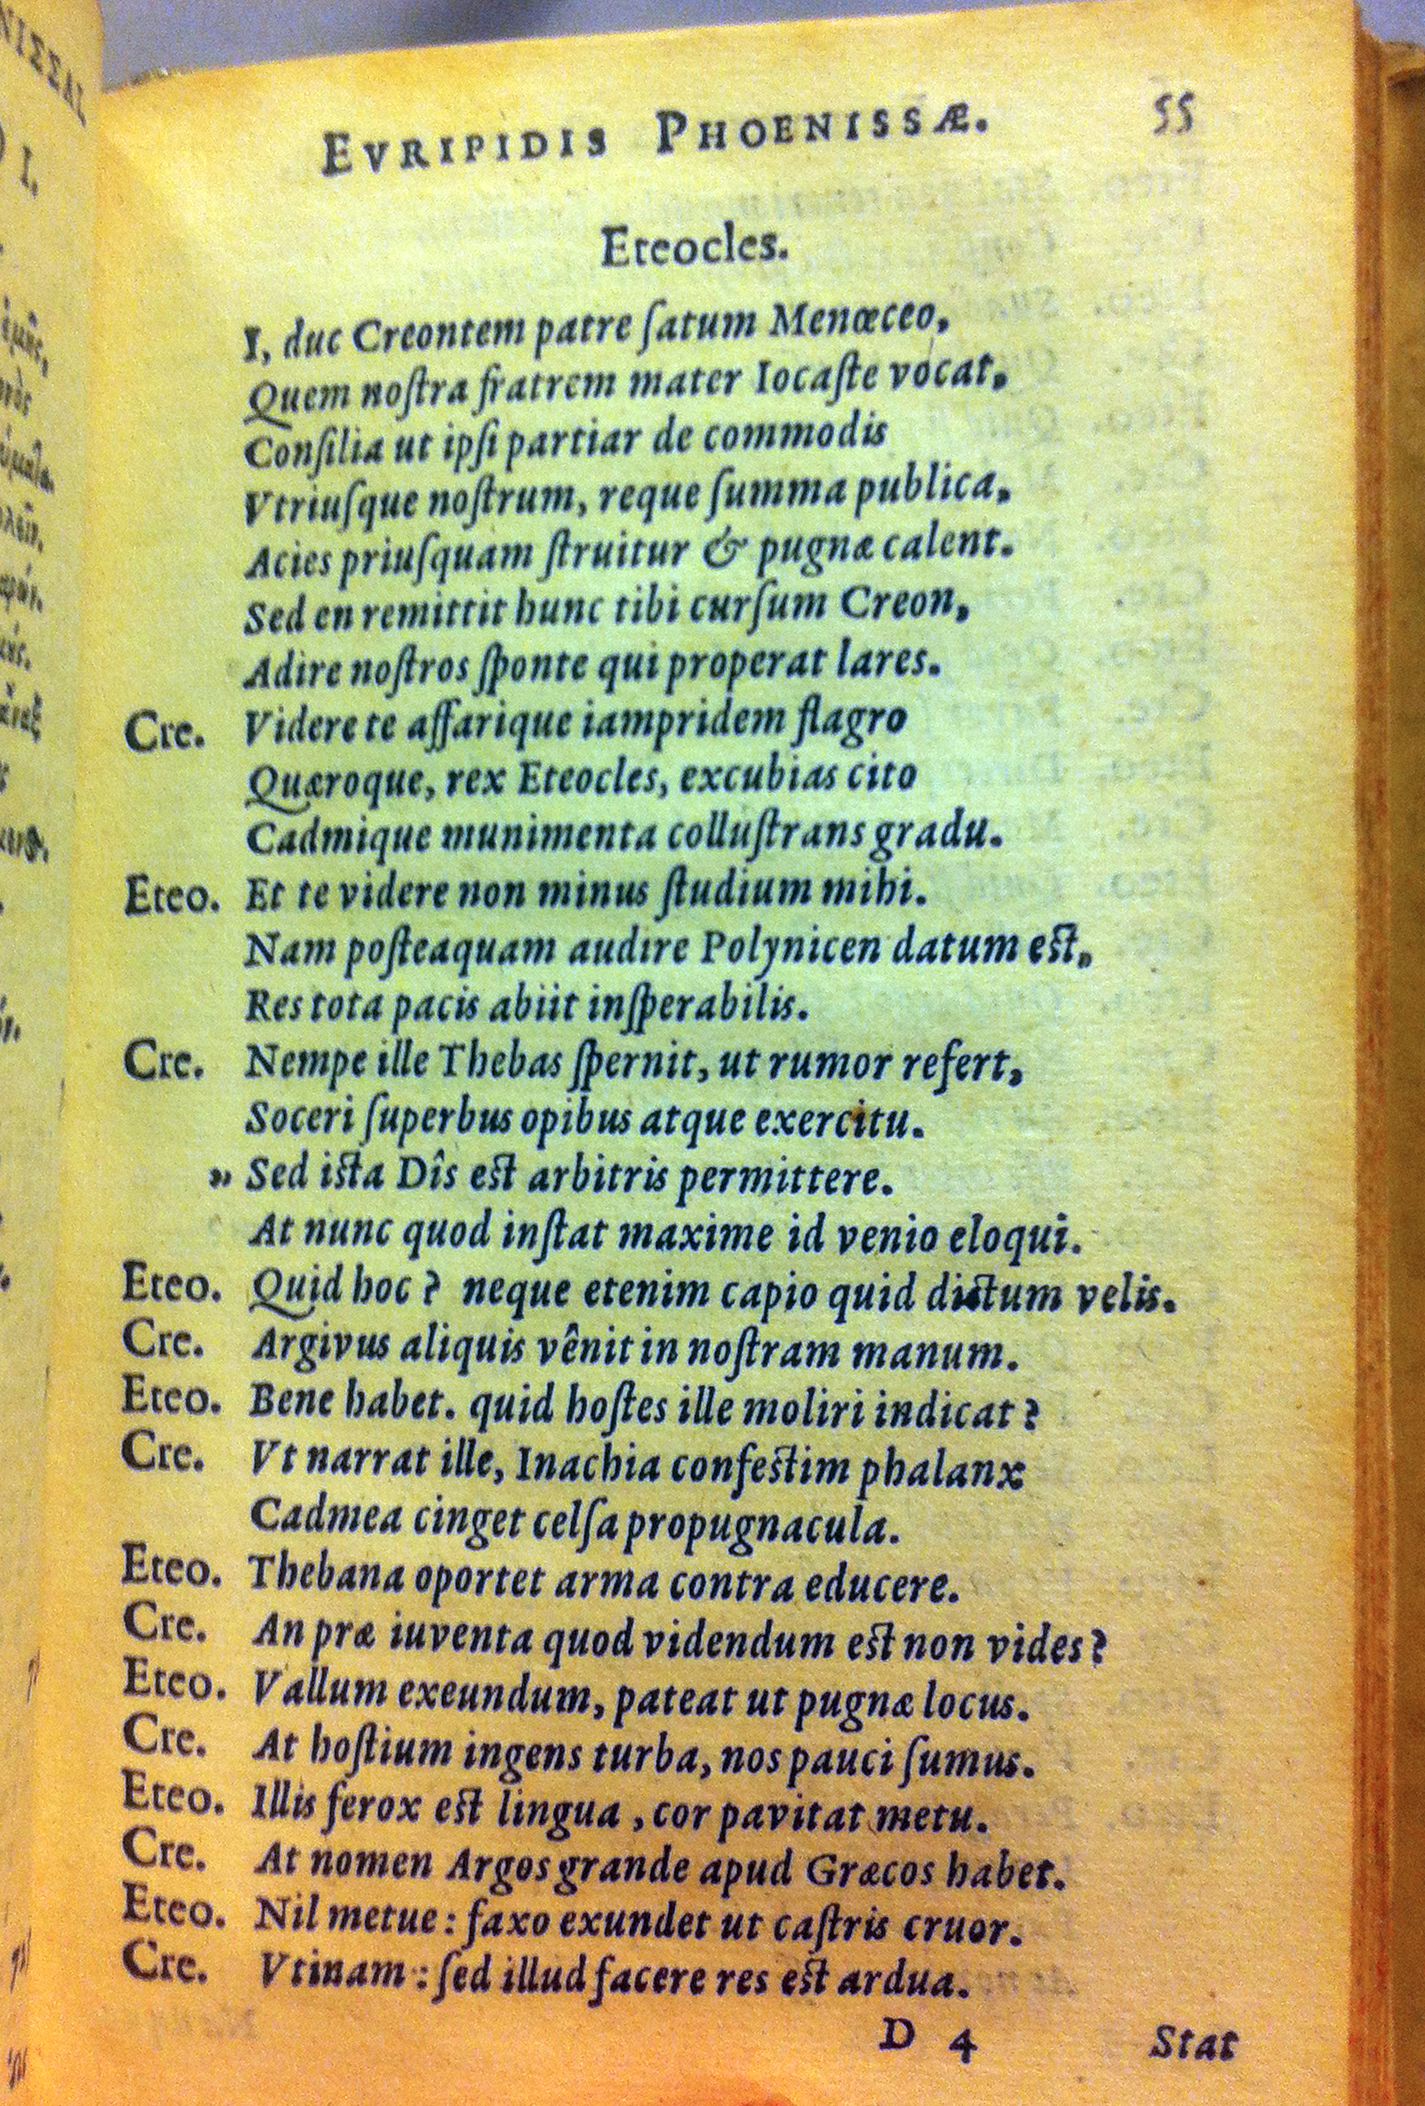 EVRIPIDIS PHOENISSÆ. 55
Eteocles.
I, duc Creontem patre ſatum Menœceo,
Quem noſtra fratrem mater Iocaſte vocat,
Conſilia ut ipſi partiar de commodis
Vtriuſque noſtrum, reque ſumma publica,
Acies priuſquam ſtruitur & pugnæ calent.
Sed en remittit hunc tibi curſum Creon,
Adire noſtros ſponte qui properat lares.
Cre. Videre te affarique iampridem flagro
Quæroque, rex Eteocles, excubias cito
Cadmique munimenta colluſtrans gradu.
Eteo. Et te videre non minus ſtudium mihi.
Nam poſteaquam audire Polynicen datum est,
Res tota pacis abiit inſperabilis.
Cre. Nempe ille Thebas ſpernit, ut rumor refert,
Soceri ſuperbus opibus atque exercitu.
„ Sed ista Dîs est arbitris permittere.
At nunc quod inſtat maxime id venio eloqui.
Eteo. Quid hoc? neque etenim capio quid dictum velis.
Cre. Argivus aliquis vênit in noſtram manum.
Eteo. Bene habet. quid hoſtes ille moliri indicat?
Cre. Vt narrat ille, Inachia confestim phalanx
Cadmea cinget celſa propugnacula.
Eteo. Thebana oportet arma contra educere.
Cre. An præ iuventa quod videndum est non vides?
Eteo. Vallum exeundum, pateat ut pugnæ locus.
Cre. At hoſtium ingens turba, nos pauci ſumus.
Eteo. Illis ferox est lingua, cor pavitat metu.
Cre. At nomen Argos grande apud Græcos habet.
Eteo. Nil metue: faxo exundet ut caſtris cruor.
Cre. Vtinam: ſed illud facere res est ardua.
D 4 Stat